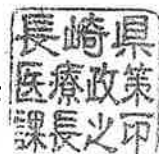 長崎県
医療政策
課長之印